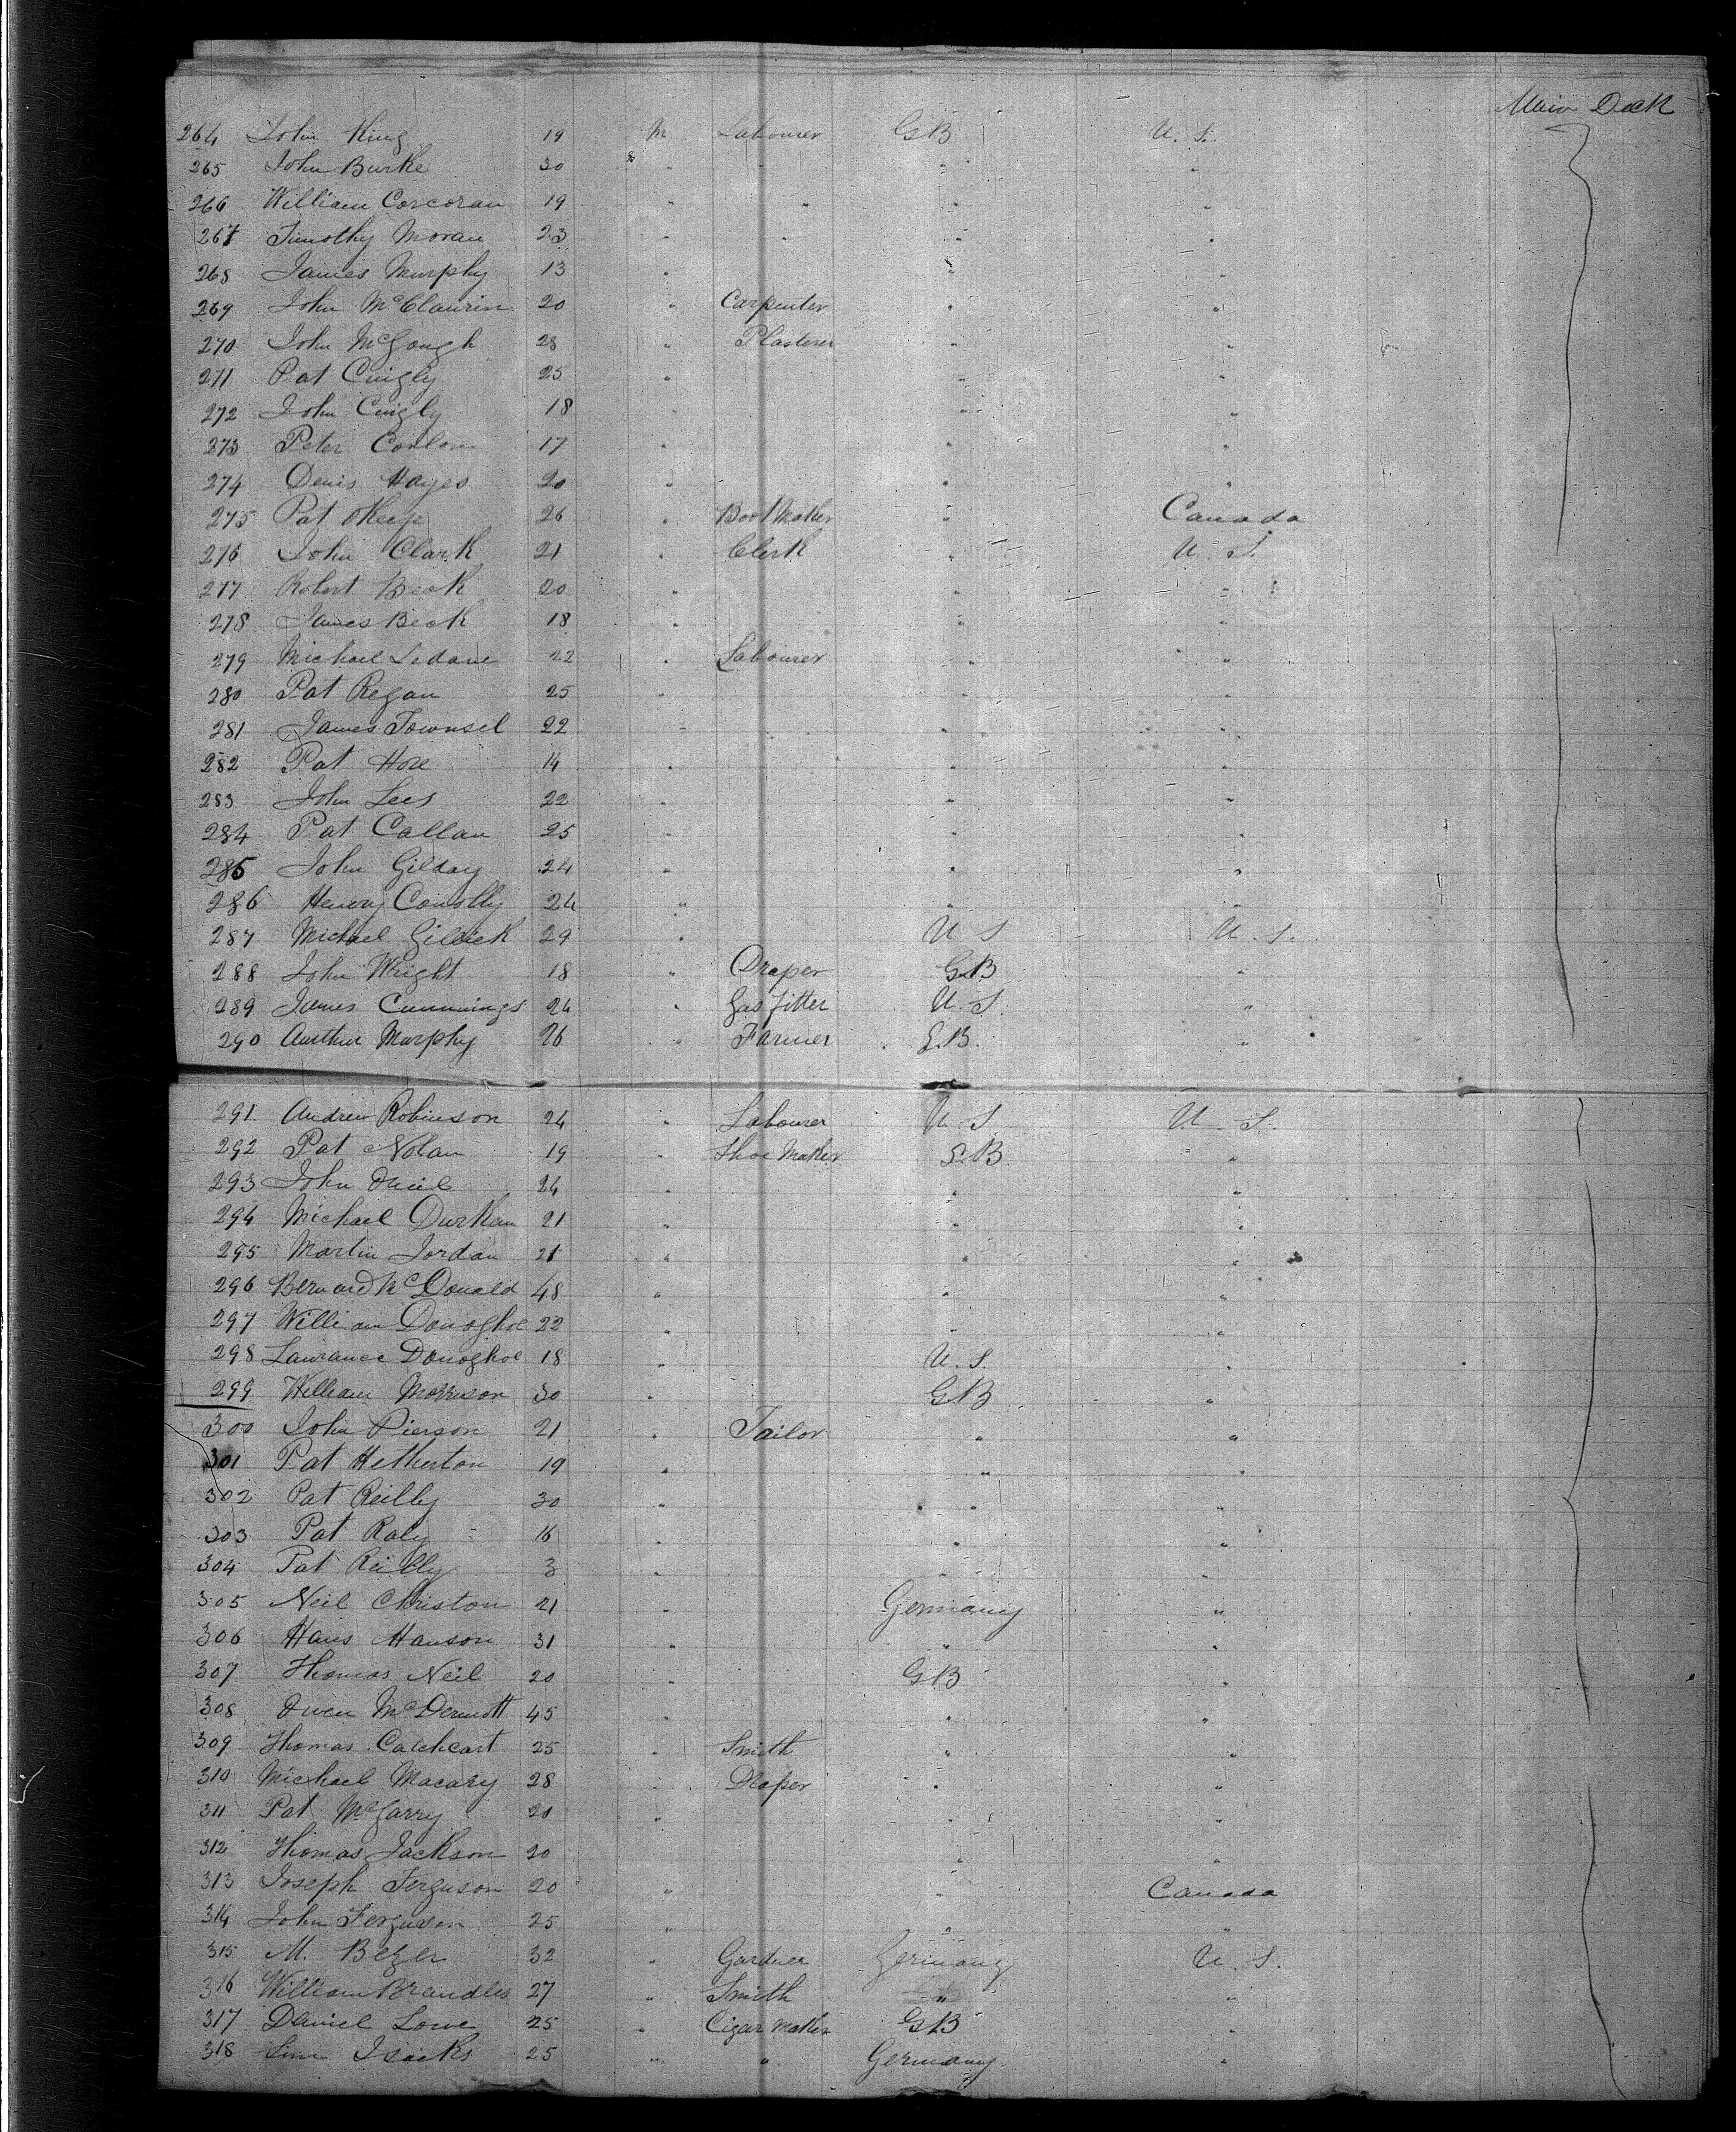 Main Deck
264 John King 19 M Labourer GB U.S.
265 John Burke 30 " " " "
266 William Corcoran 19 " " " "
267 Timothy Moran 23 " " " "
268 James Murphy 13 " " "
269 John McClaurin 20 " Carpenter " "
270 John McGough 28 " Plasterer " "
271 Pat 25 " " "
272 John 18 " " "
273 Peter Conlon 17 " " "
274 Denis Hayes 20 " " "
275 Pat OKeefe 26 " Boot Maker " Canada
276 John Clark 21 " Clerk " U.S.
277 Robert Beck 20 " " "
278 James Beck 18 " " "
279 Michael Ledane 22 " Labourer " "
280 Pat Regan 25 " " "
281 James Townsel 22 " " "
282 Pat Hoze 14 " " "
283 John Lees 22 " " "
284 Pat Callan 25 " " "
285 John Gilday 24 " " "
286 Henery Conolly 24 " " "
287 Michael Gillick 29 " U S U.S.
288 John Wright 18 " Draper GB "
289 James Cummings 24 " Gas fitter U.S. "
290 Aurthur Murphy 26 " Farmer G.B. "
291 Andrew Robinson 24 " Labourer U.S U.S.
292 Pat Nolan 19 " Shoe Maker G.B. "
293 John Oneil 24 " " "
294 Michael Durkan 21 " " "
295 Martin Jordan 21 " " "
296 Bernard McDonald 48 " " "
297 William Donoghoe 22 " " "
298 Laurance Donoghoe 18 " U.S. "
299 William Morrison 30 " GB "
300 John Pierson 21 " Tailor " "
301 Pat Hetherton 19 " " "
302 Pat Reilly 30 " " "
303 Pat Raly 16 " " "
304 Pat Reilly 3 " " "
305 Neil Christon 21 " Germany "
306 Hans Hanson 31 " " "
307 Thomas Neil 20 " GB "
308 Owen McDermott 45 " " "
309 Thomas Cathcart 25 " Smith " "
310 Michael Macary 28 " Draper " "
311 Pat McGarry 20 " " "
312 Thomas Jackson 20 " "
313 Joseph Ferguson 20 " " Canada
314 John Ferguson 25 " " "
315 M. Bezer 32 " Gardner Germany U.S.
316 William Brandles 27 " Smith " "
317 Daniel Lowe 25 " Cigar Maker GB "
318 Sim Isacks 25 " " Germany "